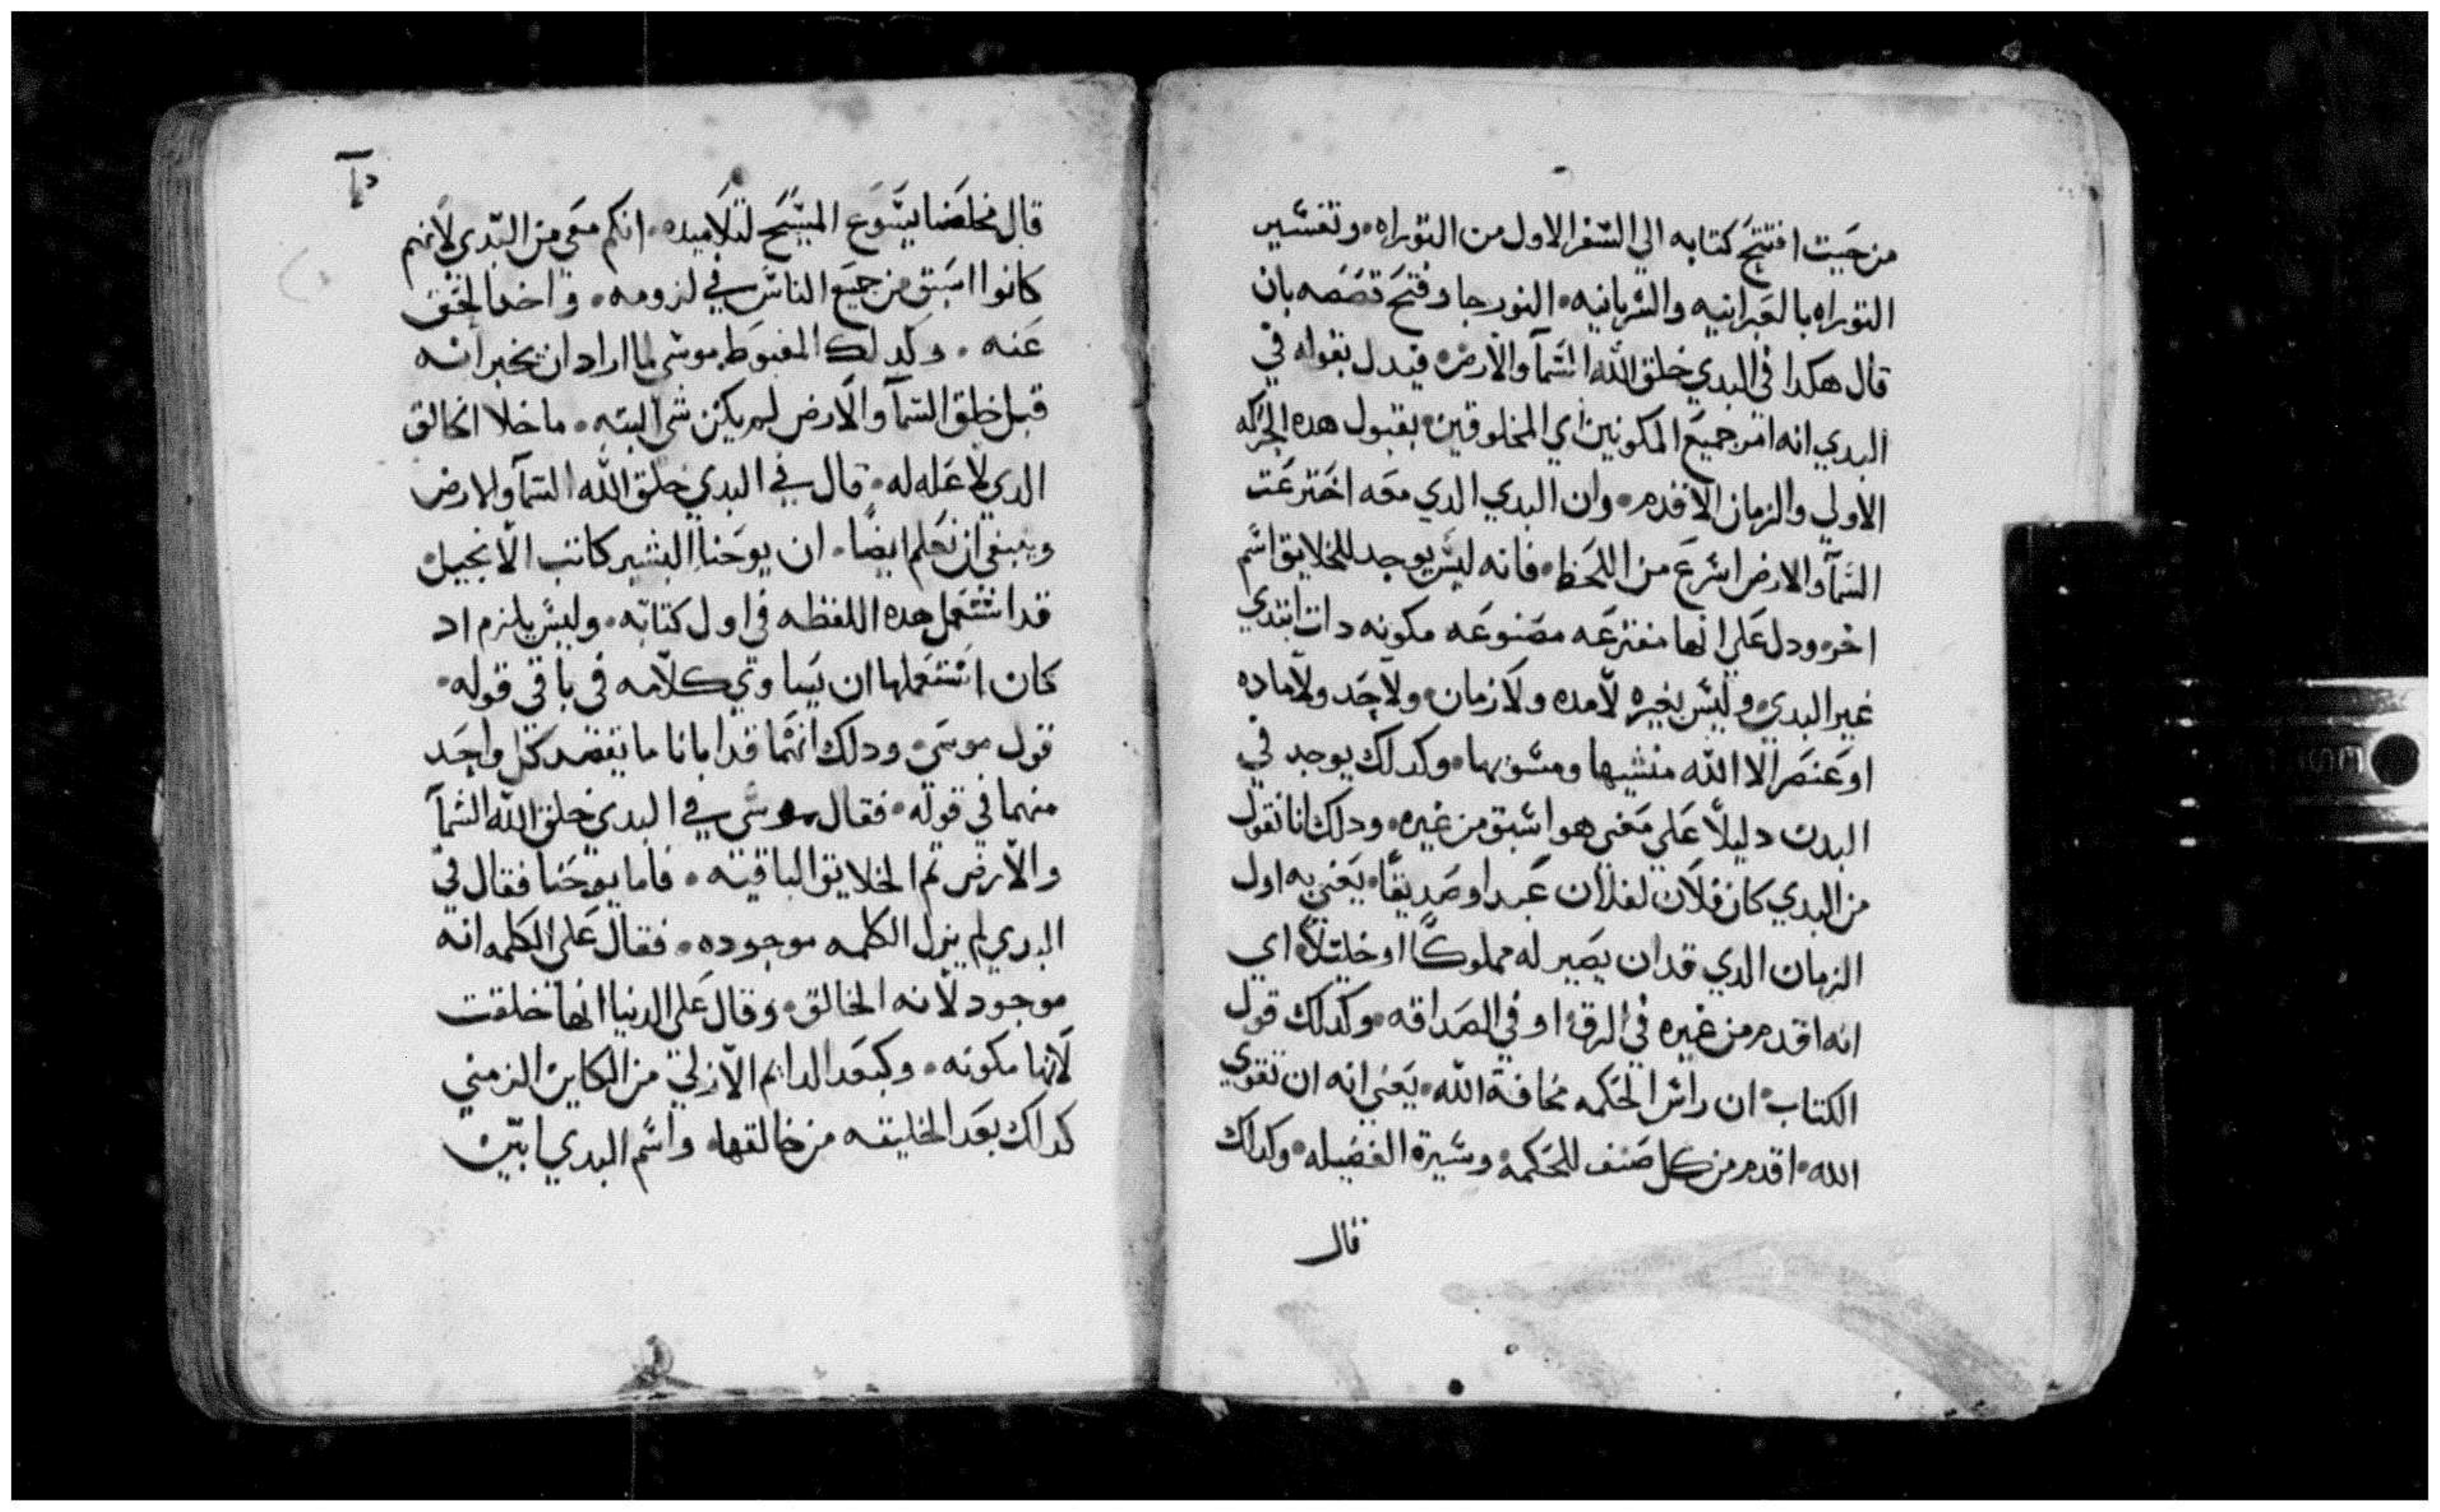 من حيت افتتح كتابه الي السفر الاول من التوراه • وتفسير
التوراه بالعبرانيه والسريانيه • النور جا وفتح قصصه بان
قال هكدا في البدي خلق الله السمآ والارض • فيدل بقوله في
البدي انه امر جميع المكونين اي المخلوقين • بقبول هده الحركه
الاولي والزمان الاقدم • وان البدي الدي معه اخترعت
السمآ والارض اسرع من اللحظ • فانه ليس يوجد للخلايق اسم
اخر • ودل علي انها مفترعه مصنوعه مكونه دات ابتدي
غير البدي • وليس بغيره لا مده ولا زمان • ولا حد ولا ماده
او عنصر الا الله منشيها ومسويها • وكدلك يوجد في
البدت دليلاً علي معني هو اسبق من غيره • ودلك انا نقول
من البدي كان فلان لفلان عبدا وصديقًا • يعني به اول
الزمان الدي قد ان يصير له مملوكًا او خليلاً اي
انه اقدم من غيره في الرق • او في الصداقه • وكدلك قول
الكتاب • ان راس الحكمه مخافة الله • يعني انه ان تقوي
الله • اقدم من كل صنف للحكمة • وسيرة الفضيله • وكدلك
قال
قال مخلصنا يسوع المسيح لتلاميده • انكم معي من البدي لانهم
كانوا اسبق من جميع الناس في لزومه • واخد الحق
عنه • وكدلك المغبوط موسي لما اراد ان يخبر انه
قبل خلق السمآ والارض لم يكن شي البته • ما خلا الخالق
الدي لا عله له • قال في البدي خلق الله السمآ والارض
وينبغي ان نعلم ايضًا • ان يوحنا البشير كاتب الانجيل
قد استعمل هده اللفظه في اول كتابه • وليس يلزم اد
كان استعملها ان يساوي كلامه في باقي قوله •
قول موسي • ودلك انهما قد ابانا ما يقصد كل واحد
منهما في قوله • فقال موسي في البدي خلق الله السمآ
والارض تم الخلايق الباقيه • فاما يوحنا فقال في
البدي لم يزل الكلمه موجوده • فقال علي الكلمه انه
موجود لانه الخالق • وقال علي الدنيا انها خلقت
لانها مكونه • وكبعد الدايم الازلي من الكاين الزمني
كدلك بعد الخليقه من خالقها • واسم البدي ابين